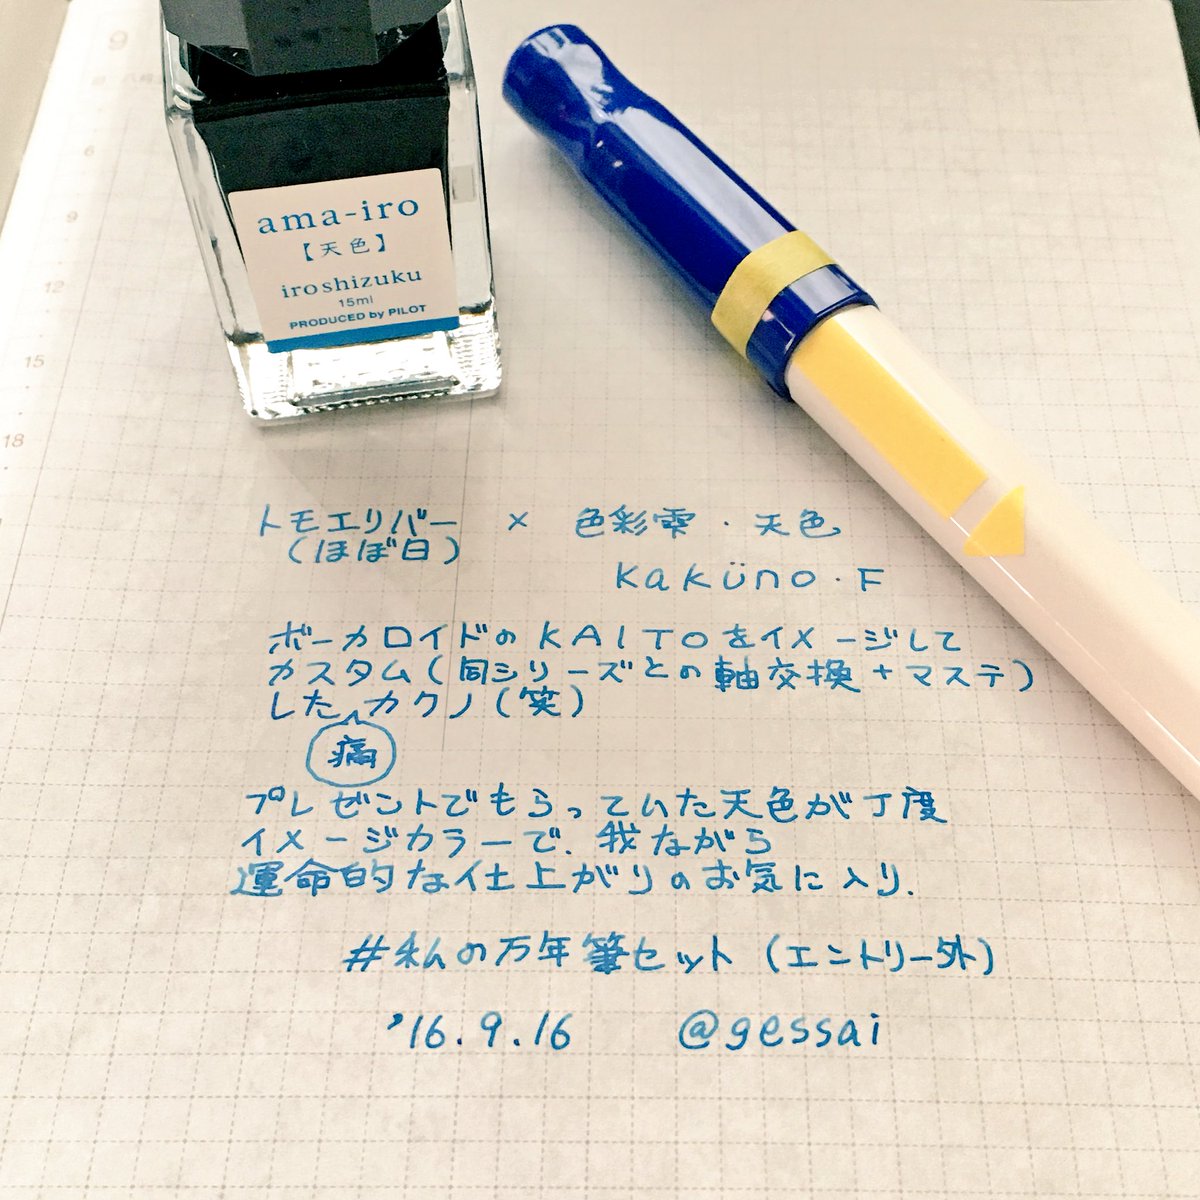 9
6
9
12
15
18
ama-iro
【天色】
iroshizuku
15ml
PRODUCED by PILOT
トモエリバー × 色彩雫・天色
(ほぼ日)
Kaküno・F
ボーカロイドのKAITOをイメージして
カスタム(同シリーズとの軸交換+マステ)
したカクノ(笑)
痛
プレゼントでもらっていた天色が丁度
イメージカラーで、我ながら
運命的な仕上がりのお気に入り.
#私の万年筆セット(エントリー外)
'16.9.16 @gessai